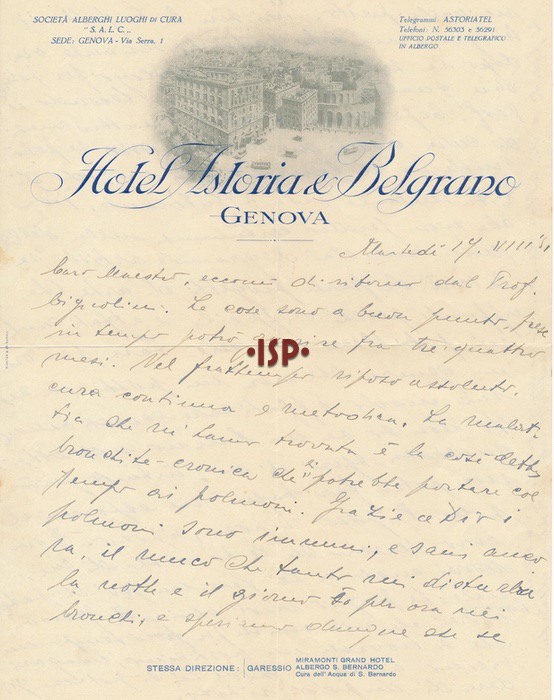 SOCIETÀ ALBERGHI LUOGHI DI CURA
"S. A. L. C."
SEDE: GENOVA - Via Serra, 1
Telegrammi: ASTORIATEL
Telefoni: N. 56303 e 56291
UFFICIO POSTALE E TELEGRAFICO
IN ALBERGO
Hotel Astoria & Belgrano
GENOVA
Martedì 14. VIII
Caro Maestro, eccomi di ritorno dal Prof.
Bignolini. Le cose sono a buon punto, prese
in tempo potrò guarire fra tre-quattro
mesi. Nel frattempo riposo assoluto,
cura continua e metodica. La malat-
tia che mi hanno trovata è la così detta
bronchite-cronica che potrebbe portare col
tempo ai polmoni. Grazie a Dio i
polmoni sono immuni, e sani anco
ra, il muco che tanto mi disturba
la notte e il giorno per ora nei
bronchi, e speriamo dunque che se
ISP
STESSA DIREZIONE: GARESSIO
MIRAMONTI GRAND HOTEL
ALBERGO S. BERNARDO
Cura dell'Acqua di S. Bernardo